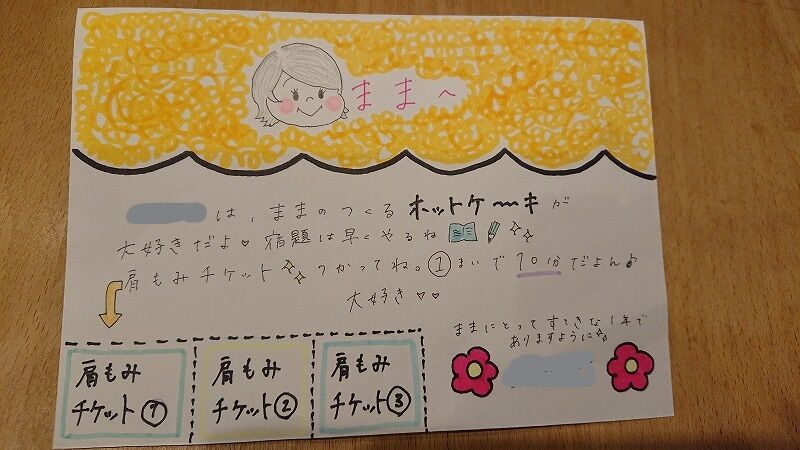 ままへ
は、ままのつくるホットケーキが
大好きだよ♡宿題は早くやるね
肩もみチケットつかってね。①まいで10分だよん♪
大好き♡♡
ままにとってすてきな1年で
ありますように
肩もみ
チケット①
肩もみ
チケット②
肩もみ
チケット③